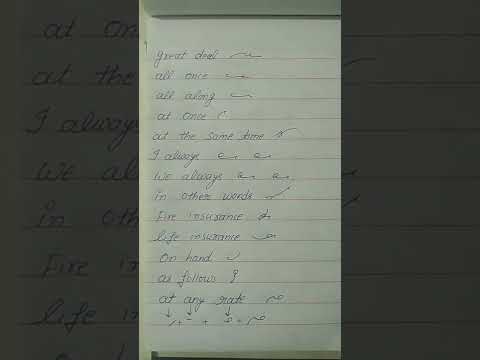 great deal
all once
all along
at once
at the same time
I always
We always
in other words
Fire insurance
life insurance
on hand
as follows
at any rate